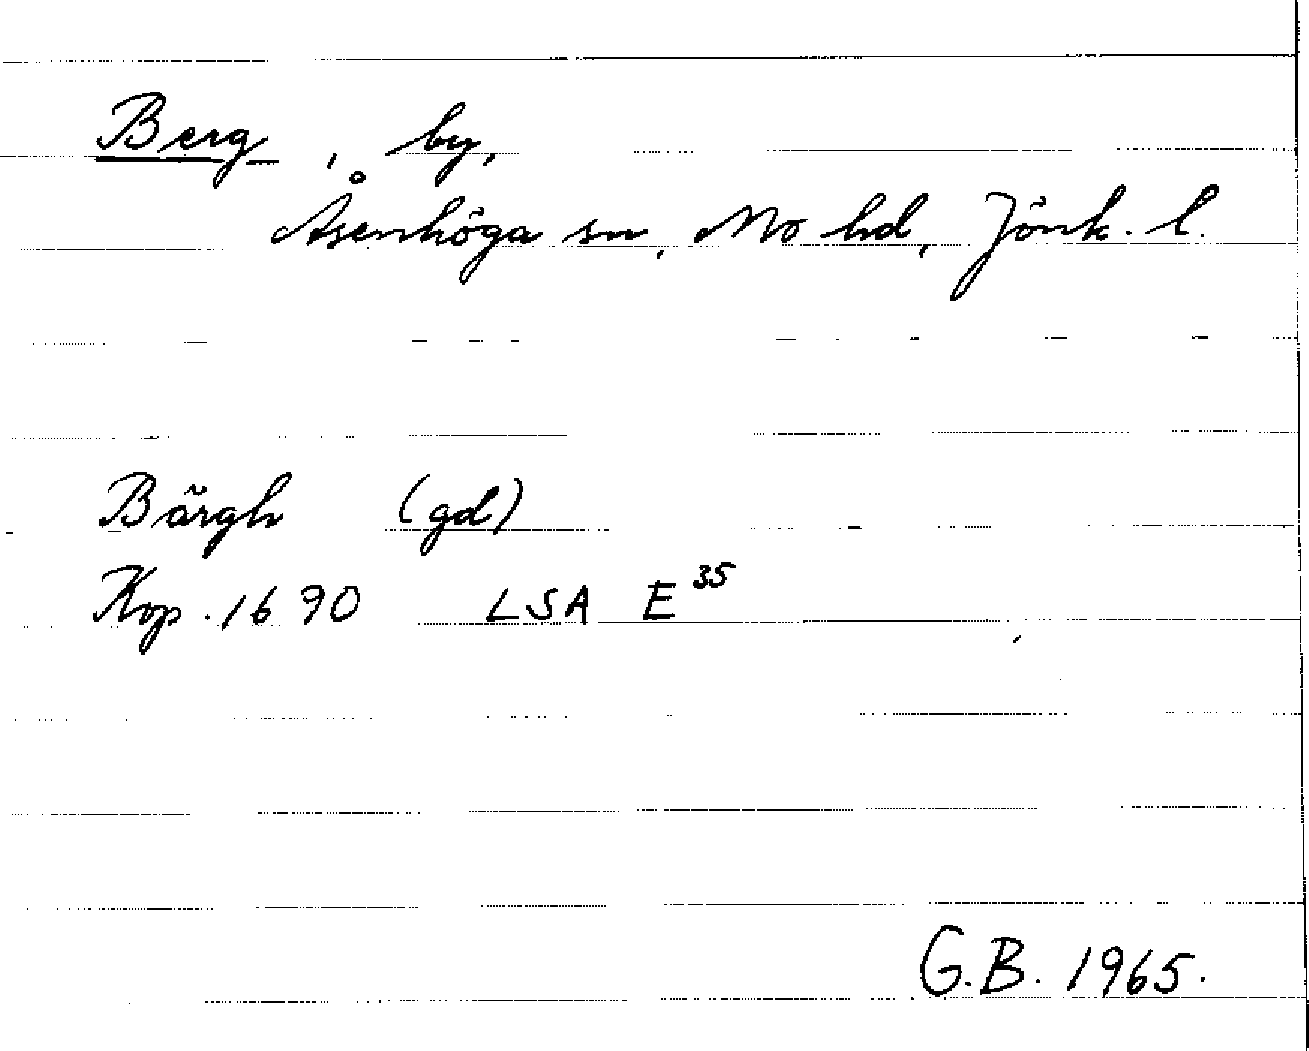 Berg, by,
Åsenhöga sn, Mo hd, Jönk. l.
Bärgh (gd)
Kop. 1690 LSA E 35
G.B. 1965.